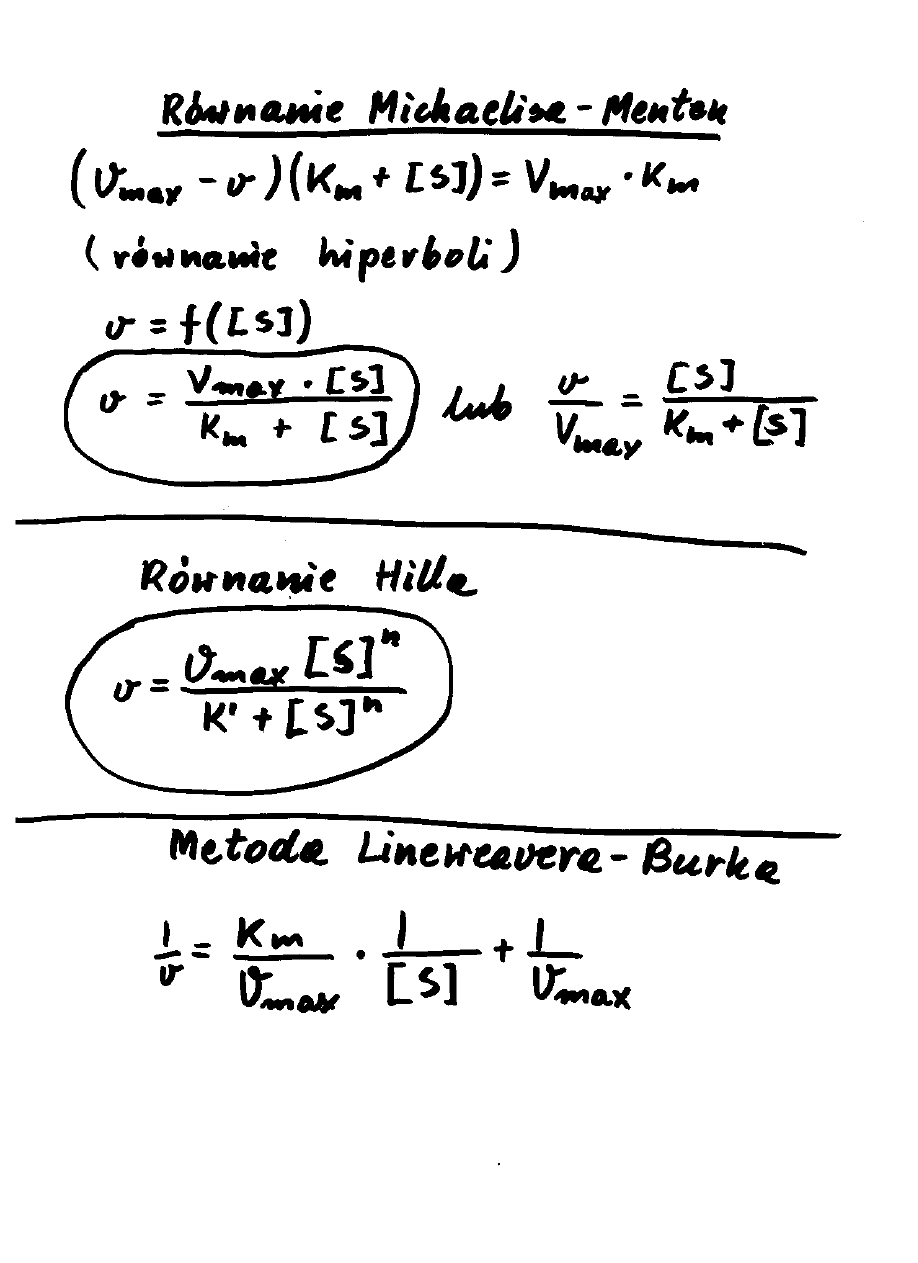 Równanie Michaelisa - Menten
(Vmax - v)(Km + [S]) = Vmax · Km
(równanie hiperboli)
v = f([S])
v = Vmax · [S] / Km + [S] lub v / Vmax = [S] / Km + [S]
Równanie Hilla
v = Vmax [S]ⁿ / K' + [S]ⁿ
Metoda Lineweavera - Burka
1/v = Km/Vmax · 1/[S] + 1/Vmax